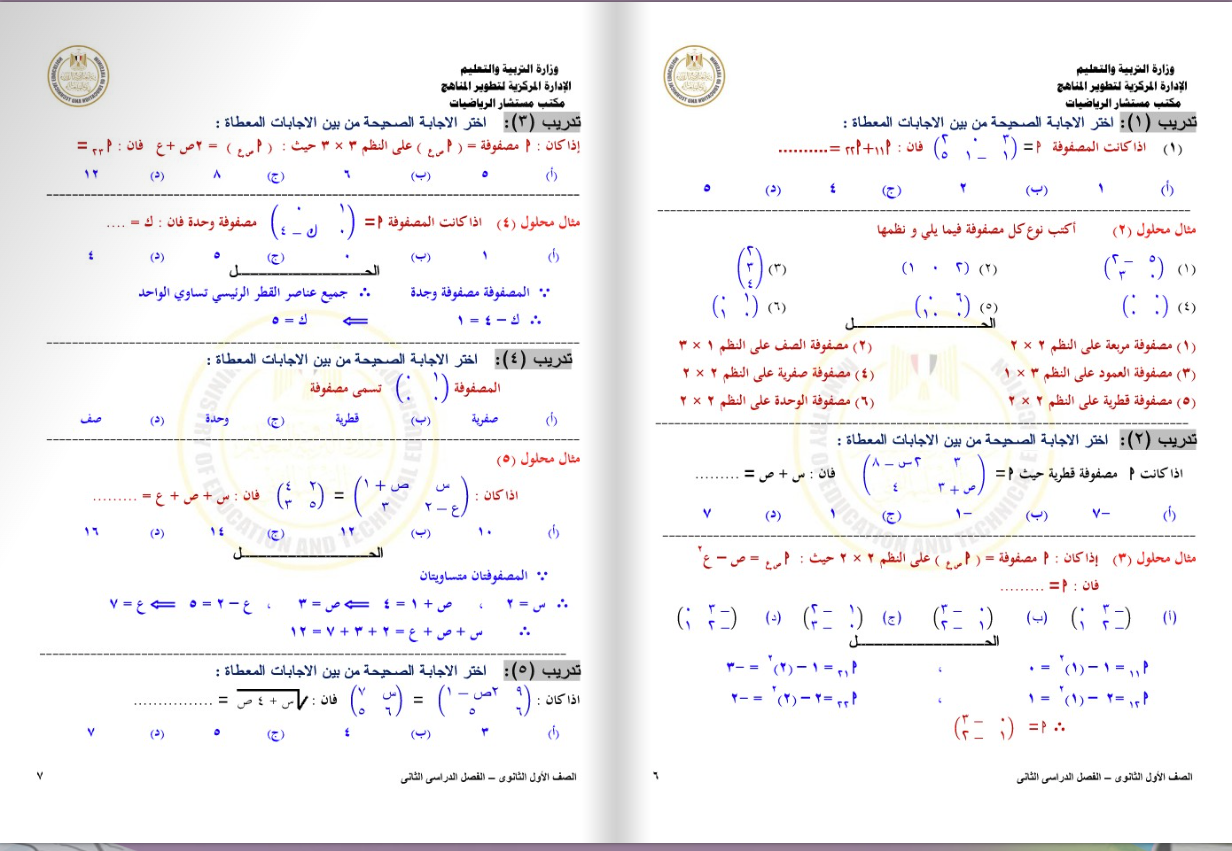 وزارة التربية والتعليم
الإدارة المركزية لتطوير المناهج
مكتب مستشار الرياضيات
تدريب (١): اختر الاجابة الصحيحة من بين الاجابات المعطاة :
(١) اذا كانت المصفوفة أ = (٣ ٠ ٢
١ −١ ٥) فان : أ١١ + أ٢٢ = ..........
(أ) ١ (ب) ٢ (ج) ٤ (د) ٥
مثال محلول (٢) أكتب نوع كل مصفوفة فيما يلي و نظمها
(١) (٥ −٢
٠ ٣) (٢) (٢ ٠ ١) (٣) (٢
٣
٤)
(٤) (٠ ٠
٠ ٠) (٥) (٦ ٠
٠ ١) (٦) (١ ٠
٠ ١)
الحـــــــــل
(١) مصفوفة مربعة على النظم ٢ × ٢ (٢) مصفوفة الصف على النظم ١ × ٣
(٣) مصفوفة العمود على النظم ٣ × ١ (٤) مصفوفة صفرية على النظم ٢ × ٢
(٥) مصفوفة قطرية على النظم ٢ × ٢ (٦) مصفوفة الوحدة على النظم ٢ × ٢
تدريب (٢): اختر الاجابة الصحيحة من بين الاجابات المعطاة :
اذا كانت أ مصفوفة قطرية حيث أ = (٣ ٢س − ٨
ص + ٣ ٤) فان : س + ص = .........
(أ) −٧ (ب) −١ (ج) ١ (د) ٧
مثال محلول (٣) إذا كان : أ مصفوفة = ( أس ع ) على النظم ٢ × ٢ حيث : أس ع = ص − ع٢
فان : أ = .........
(أ) (٠ −٣
١ −٢) (ب) (٠ −٣
١ −٢) (ج) (١ −٢
٠ −٣) (د) (٠ −٣
١ −٢)
الحـــــــــل
أ١١ = ١ − (١)٢ = ٠ ، أ١٢ = ١ − (٢)٢ = −٣
أ٢١ = ٢ − (١)٢ = ١ ، أ٢٢ = ٢ − (٢)٢ = −٢
∴ أ = (٠ −٣
١ −٢)
الصف الأول الثانوى – الفصل الدراسى الثانى
٦
وزارة التربية والتعليم
الإدارة المركزية لتطوير المناهج
مكتب مستشار الرياضيات
تدريب (٣): اختر الاجابة الصحيحة من بين الاجابات المعطاة :
إذا كان : أ مصفوفة = ( أس ع ) على النظم ٣ × ٣ حيث : ( أس ع ) = ٢ص + ع فان : أ٢٣ =
(أ) ٥ (ب) ٦ (ج) ٨ (د) ١٢
مثال محلول (٤) اذا كانت المصفوفة أ = (١ ٠
٠ ك − ٤) مصفوفة وحدة فان : ك = ....
(أ) ١ (ب) ٠ (ج) ٥ (د) ٤
الحـــــــــل
∵ المصفوفة مصفوفة وحدة ∴ جميع عناصر القطر الرئيسي تساوي الواحد
∴ ك − ٤ = ١ ⟸ ك = ٥
تدريب (٤): اختر الاجابة الصحيحة من بين الاجابات المعطاة :
المصفوفة (١ ٠
٠ ٠) تسمى مصفوفة
(أ) صفرية (ب) قطرية (ج) وحدة (د) صف
مثال محلول (٥)
اذا كان : (س ص + ١
ع − ٢ ٣) = (٢ ٤
٥ ٣) فان : س + ص + ع = .........
(أ) ١٠ (ب) ١٢ (ج) ١٤ (د) ١٦
الحـــــــــل
∵ المصفوفتان متساويتان
∴ س = ٢ ، ص + ١ = ٤ ⟸ ص = ٣ ، ع − ٢ = ٥ ⟸ ع = ٧
∴ س + ص + ع = ٢ + ٣ + ٧ = ١٢
تدريب (٥): اختر الاجابة الصحيحة من بين الاجابات المعطاة :
اذا كان : (٩ ٢ص − ١
٦ ٥) = (س ٧
٦ ٥) فان : √س + ٤ ص = ................
(أ) ٣ (ب) ٤ (ج) ٥ (د) ٧
الصف الأول الثانوى – الفصل الدراسى الثانى
٧